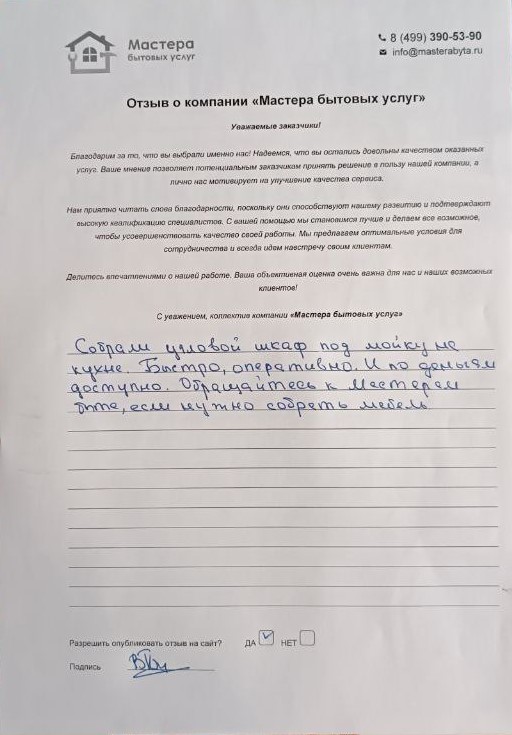 Мастера
бытовых услуг
8 (499) 390-53-90
info@masterabyta.ru
Отзыв о компании «Мастера бытовых услуг»
Уважаемые заказчики!
Благодарим за то, что вы выбрали именно нас! Надеемся, что вы остались довольны качеством оказанных
услуг. Ваше мнение позволяет потенциальным заказчикам принять решение в пользу нашей компании, а
лично нас мотивирует на улучшение качества сервиса.
Нам приятно читать слова благодарности, поскольку они способствуют нашему развитию и подтверждают
высокую квалификацию специалистов. С вашей помощью мы становимся лучше и делаем все возможное,
чтобы усовершенствовать качество своей работы. Мы предлагаем оптимальные условия для
сотрудничества и всегда идем навстречу своим клиентам.
Делитесь впечатлениями о нашей работе. Ваша объективная оценка очень важна для нас и наших возможных
клиентов!
С уважением, коллектив компании «Мастера бытовых услуг»
Собрали угловой шкаф под мойку на
кухне. Быстро, оперативно. И по деньгам
доступно. Обращайтесь к Мастерам
быта, если нужно собрать мебель
Разрешить опубликовать отзыв на сайт? ДА НЕТ
Подпись